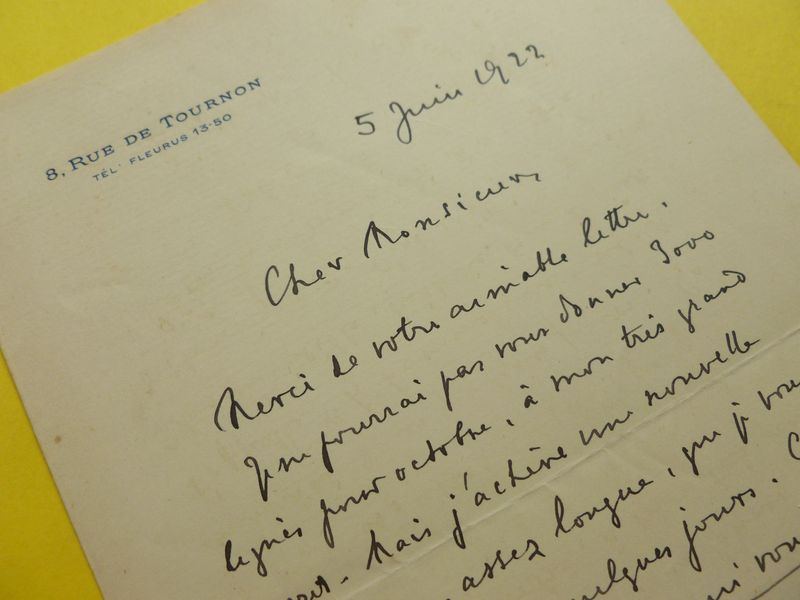 8, RUE DE TOURNON
TÉL. FLEURUS 13-50
5 Juin 1922
Cher Monsieur,
Merci de votre aimable lettre.
Je ne pourrai pas vous donner 3000
lignes pour octobre, à mon très grand
Mais j'achève une nouvelle
assez longue, que je
jours.